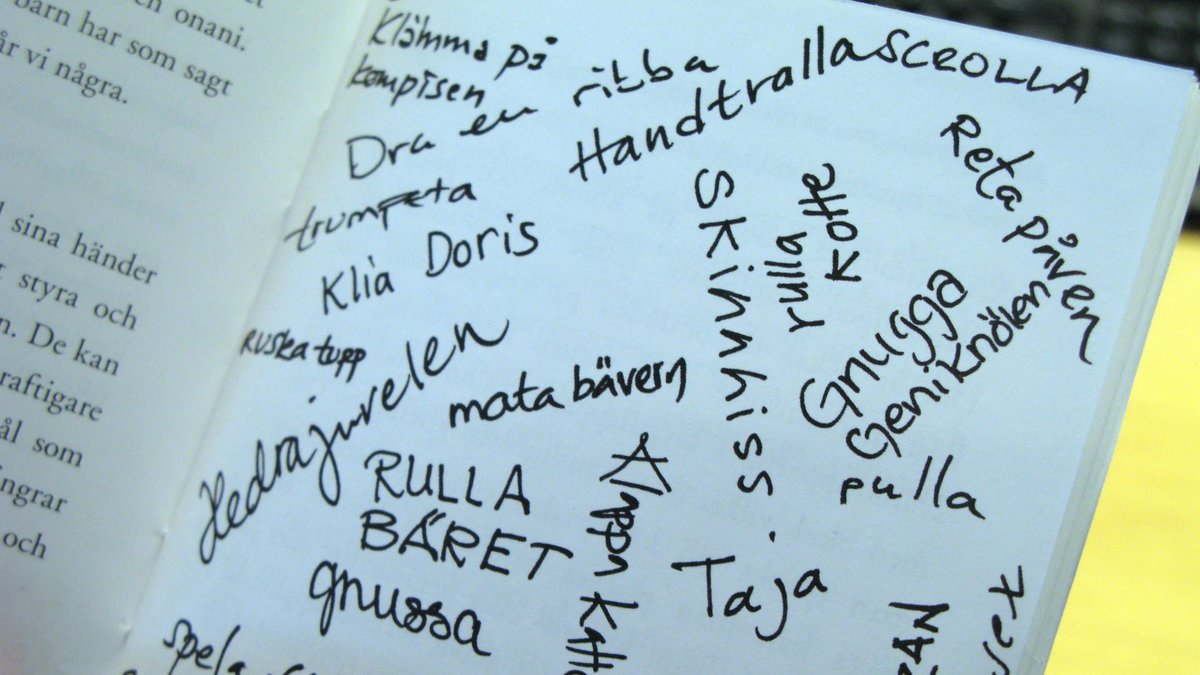 onani.
barn har som sagt
år vi några.
sina händer
styra och
n. De kan
raftigare
ål som
ingrar
och
Klämma på
kompisen
Dra en ribba
Handtralla
SCROLLA
trumpeta
Klia Doris
Reta påven
SKinnyiss
rulla
kotte
ruska tupp
Hedra juvelen
mata bävern
Gnugga
Geni Knölen
pulla
RULLA
BÄRET
gnussa
Taja
spela